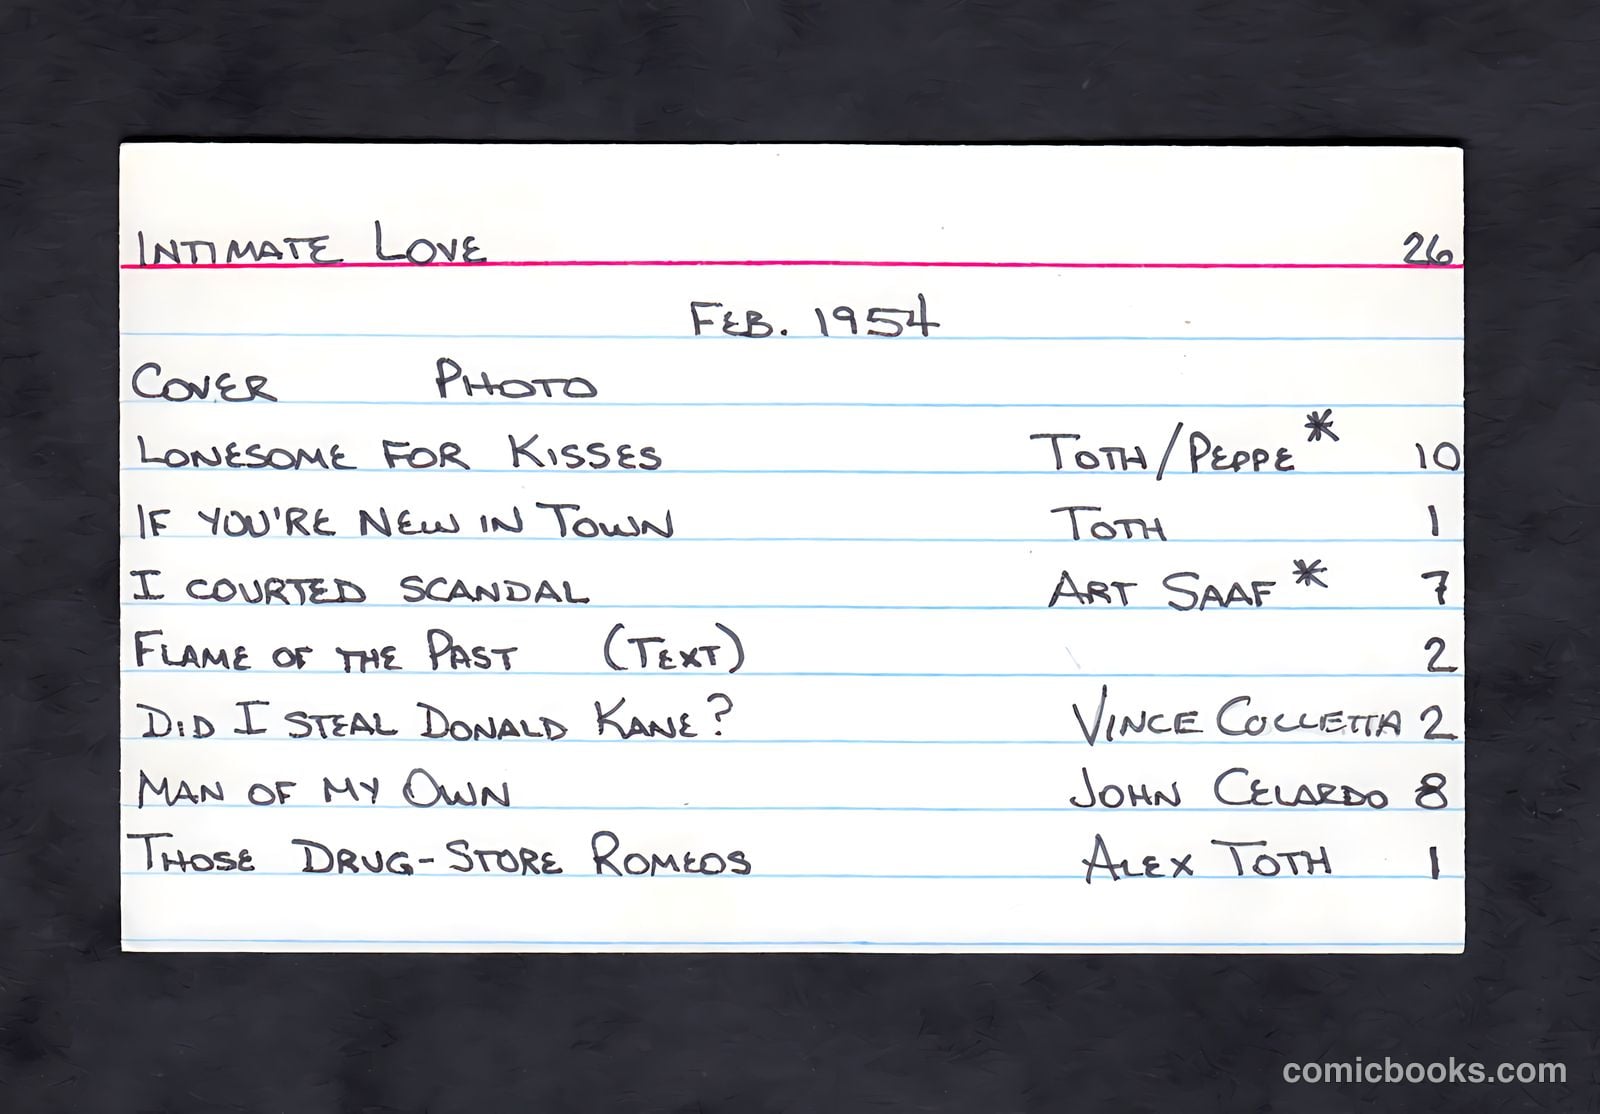 INTIMATE LOVE 26
FEB. 1954
COVER PHOTO
LONESOME FOR KISSES TOTH/PEPPE* 10
IF YOU'RE NEW IN TOWN TOTH 1
I COURTED SCANDAL ART SAAF* 7
FLAME OF THE PAST (TEXT) 2
DID I STEAL DONALD KANE? VINCE COLLETTA 2
MAN OF MY OWN JOHN CELARDO 8
THOSE DRUG-STORE ROMEOS ALEX TOTH 1
comicbooks.com